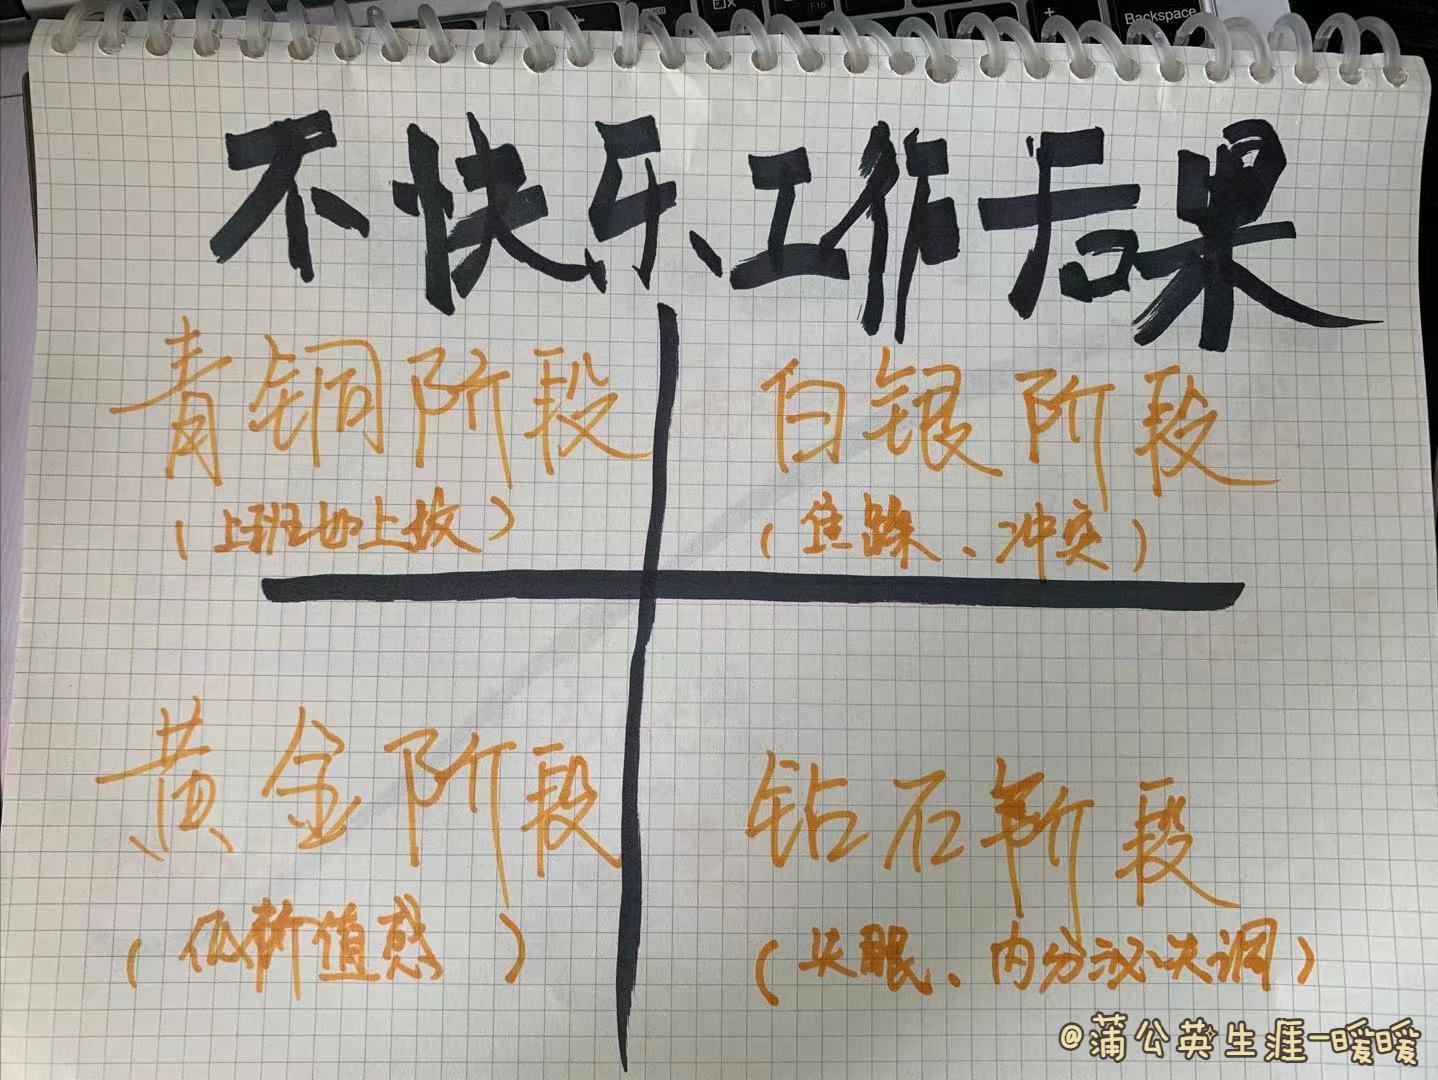 Backspace
不快乐工作后果
青铜阶段
(上班如上坟)
白银阶段
(焦躁、冲突)
黄金阶段
(低价值感)
钻石阶段
(失眠、内分泌失调)
@蒲公英生涯-暖暖